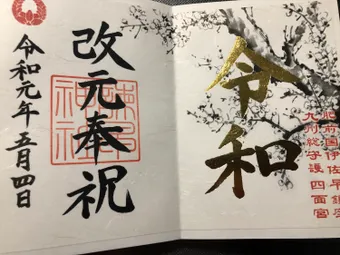 肥前国伊佐早
九州総守護 四面宮
令和
改元奉祝
諫早
神社
令和元年 五月四日